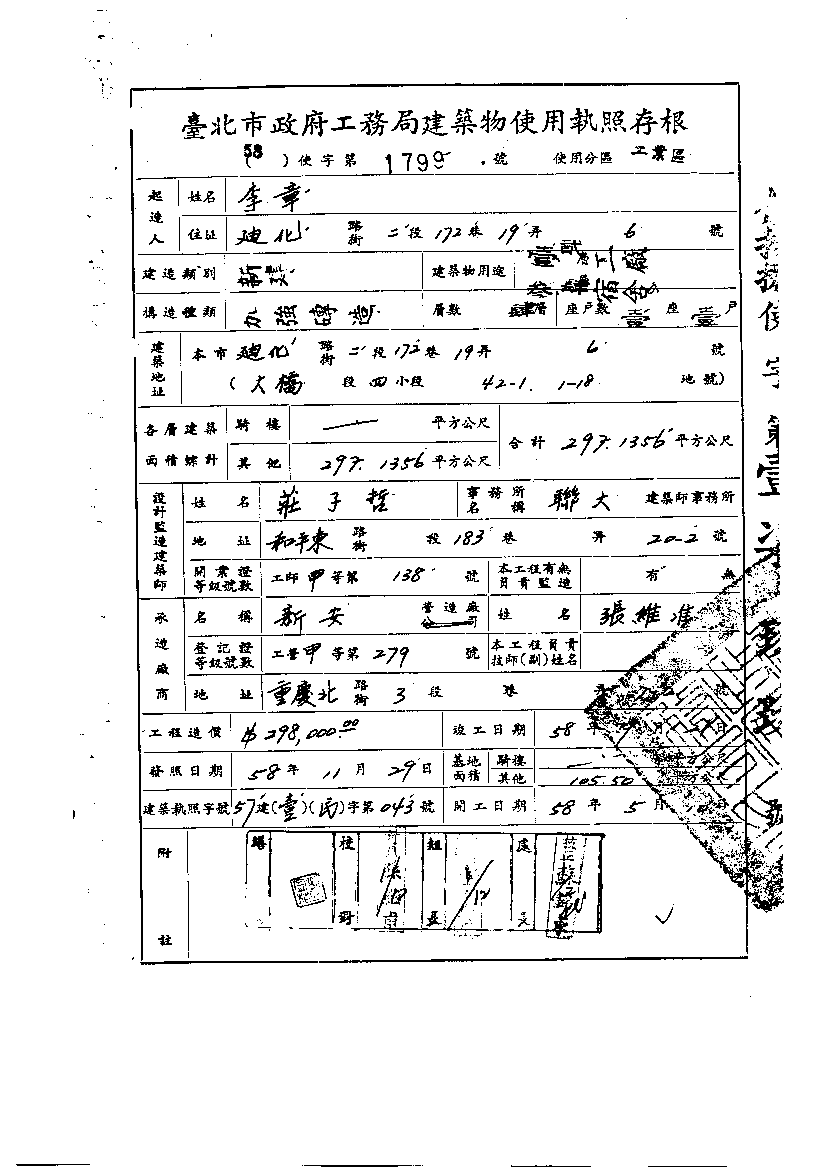 臺北市政府工務局建築物使用執照存根
(58)使字第 1799 號 使用分區 工業區
起造人 姓名 李章
住址 迪化 路街 二段172巷19弄 6 號
建造類別 新建 建築物用途 壹貳層工廠
宿舍
構造種類 加強磚造 層數 層 座戶數 壹 座 壹 戶
建築地址 本市 迪化 路街 二段172巷19弄 6 號
(大橋 段四小段 42-1. 1-18 地號)
各層建築面積總計 騎樓 — 平方公尺 合計 297.1356 平方公尺
其他 297.1356 平方公尺
設計監造建築師 姓名 莊子哲 事務所名稱 聯大 建築師事務所
地址 和平東 路街 段183巷 弄 20-2 號
開業證等級號數 工師甲等第 138 號 本工程有無負責監造 有 無
承造廠商 名稱 新安 營造廠公司 姓名 張維准
登記證等級號數 工營甲等第 279 號 本工程負責技師(副)姓名
地址 重慶北 路街 3 段 號
工程造價 $298,000.00 竣工日期 58年 月 日
發照日期 58年11月29日 基地面積 騎樓 — 平方公尺
其他 105.50 平方公尺
建築執照字號 57建(壹)(民)字第043號 開工日期 58年5月 日
附註
繕 校對 組長 處長